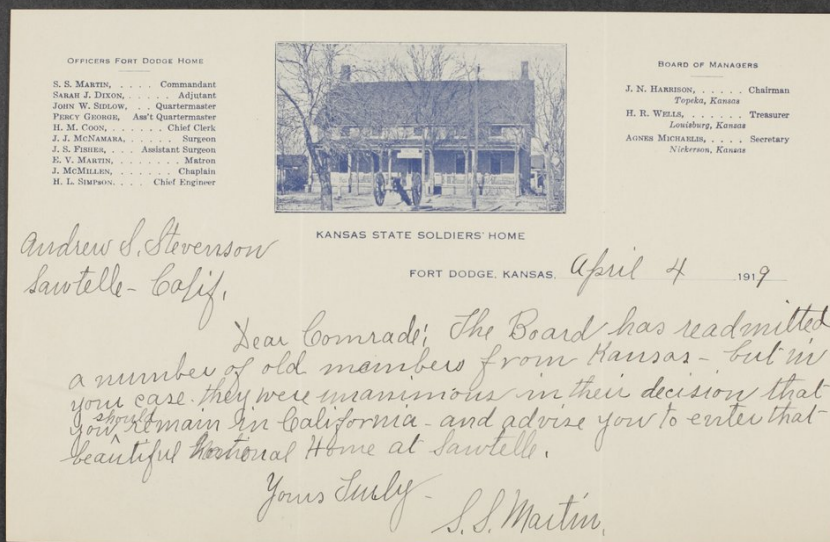 OFFICERS FORT DODGE HOME
S. S. MARTIN, . . . . Commandant
SARAH J. DIXON, . . . . . Adjutant
JOHN W. SIDLOW, . . Quartermaster
PERCY GEORGE, Ass't Quartermaster
H. M. COON, . . . . . . Chief Clerk
J. J. MCNAMARA, . . . . . Surgeon
J. S. FISHER, . . . Assistant Surgeon
E. V. MARTIN, . . . . . . Matron
J. MCMILLEN, . . . . . . Chaplain
H. L. SIMPSON, . . . Chief Engineer
BOARD OF MANAGERS
J. N. HARRISON, . . . . . Chairman
Topeka, Kansas
H. R. WELLS, . . . . . . . Treasurer
Louisburg, Kansas
AGNES MICHAELIS, . . . . Secretary
Nickerson, Kansas
KANSAS STATE SOLDIERS' HOME
FORT DODGE, KANSAS, April 4 1919
Andrew S. Stevenson
Sawtelle - Calif.
Dear Comrade; The Board has readmitted
a number of old members from Kansas - but in
your case they were unanimious in their decision that
you should remain in California - and advise you to enter that
beautiful National Home at Sawtelle.
Yours Truly -
S. S. Martin.